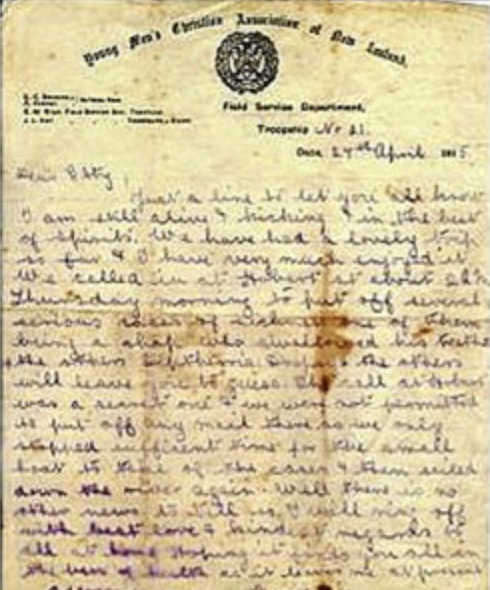 Young Men's Christian Association of New Zealand.
Field Service Department,
Troopship No 21.
Date, 24th April 1915
Dear
Just a line to let you all know
I am still alive & kicking & in the best
of spirits. We have had a lovely trip
so far & I have very much enjoyed it
We called in at Hobart at about
Thursday morning to put off several
serious cases of sickness one of them
being a chap who swallowed his teeth
the others & the others
will leave you to guess. The call at Hobart
was a secret one & we were not permitted
to put off any mail there as we only
stopped sufficient time for the small
boat to take off the cases & then sailed
down the river again. Well there is no
other news to tell so I will ring off
with best love & kindest regards to
all at home Hoping it finds you all in
the best of health as it leaves me at present